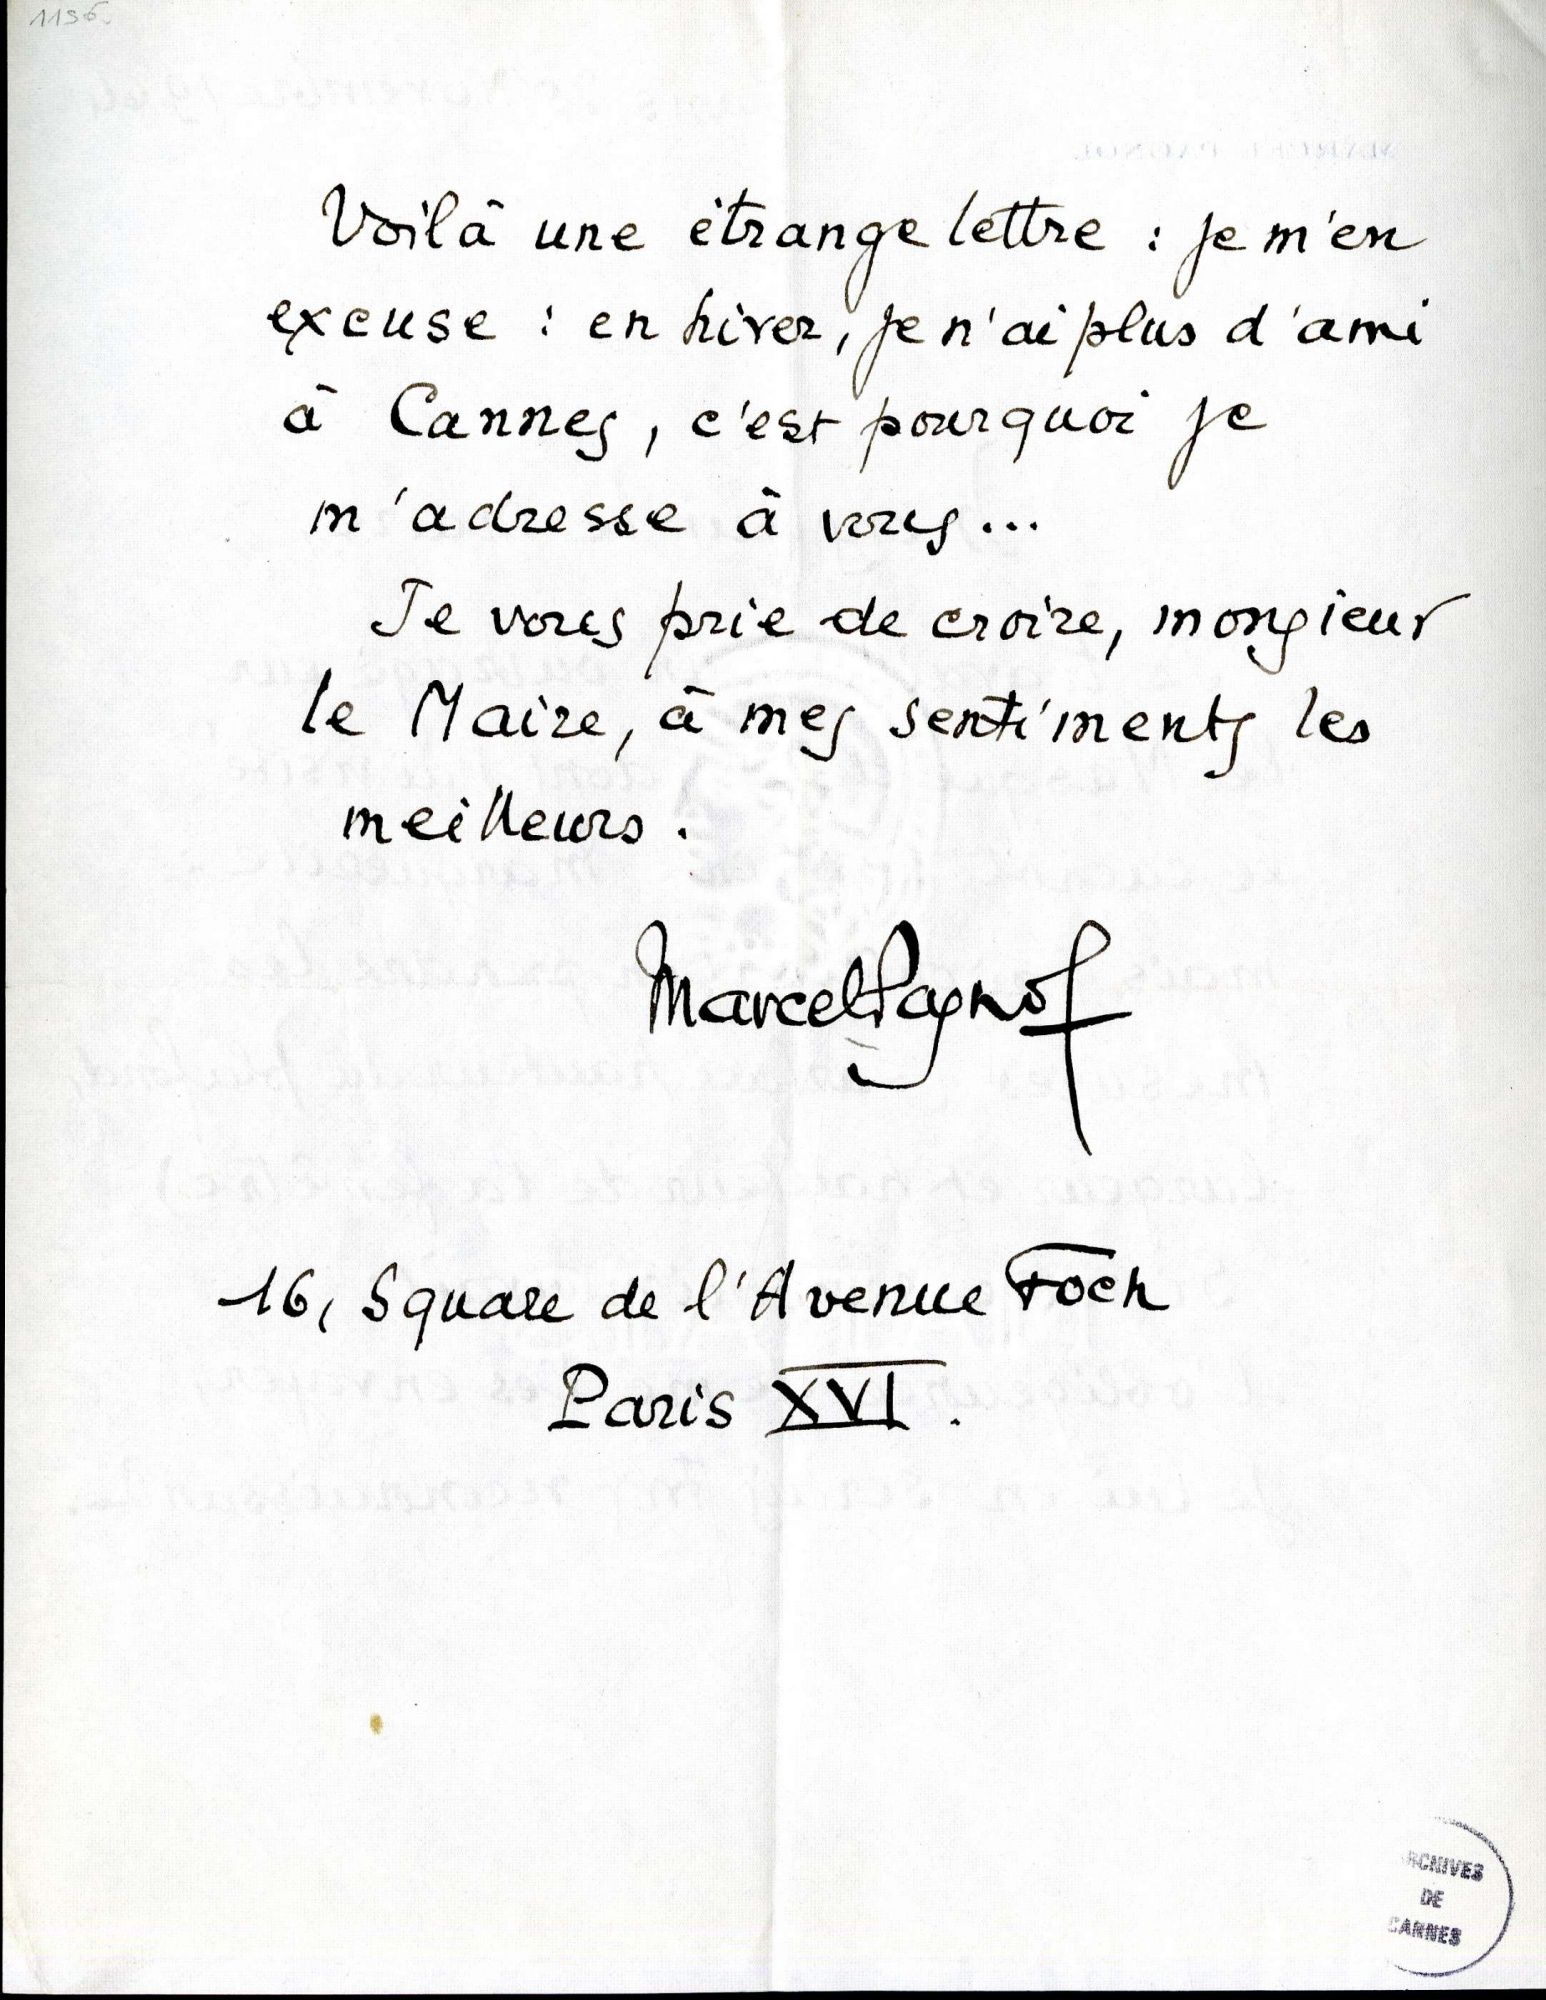 1196
Voilà une étrange lettre : je m'en
excuse : en hiver, je n'ai plus d'ami
à Cannes, c'est pourquoi je
m'adresse à vous...
Je vous prie de croire, monsieur
le Maire, à mes sentiments les
meilleurs.
Marcel Pagnol
16, Square de l'Avenue Foch
Paris XVI.
ARCHIVES
DE
CANNES